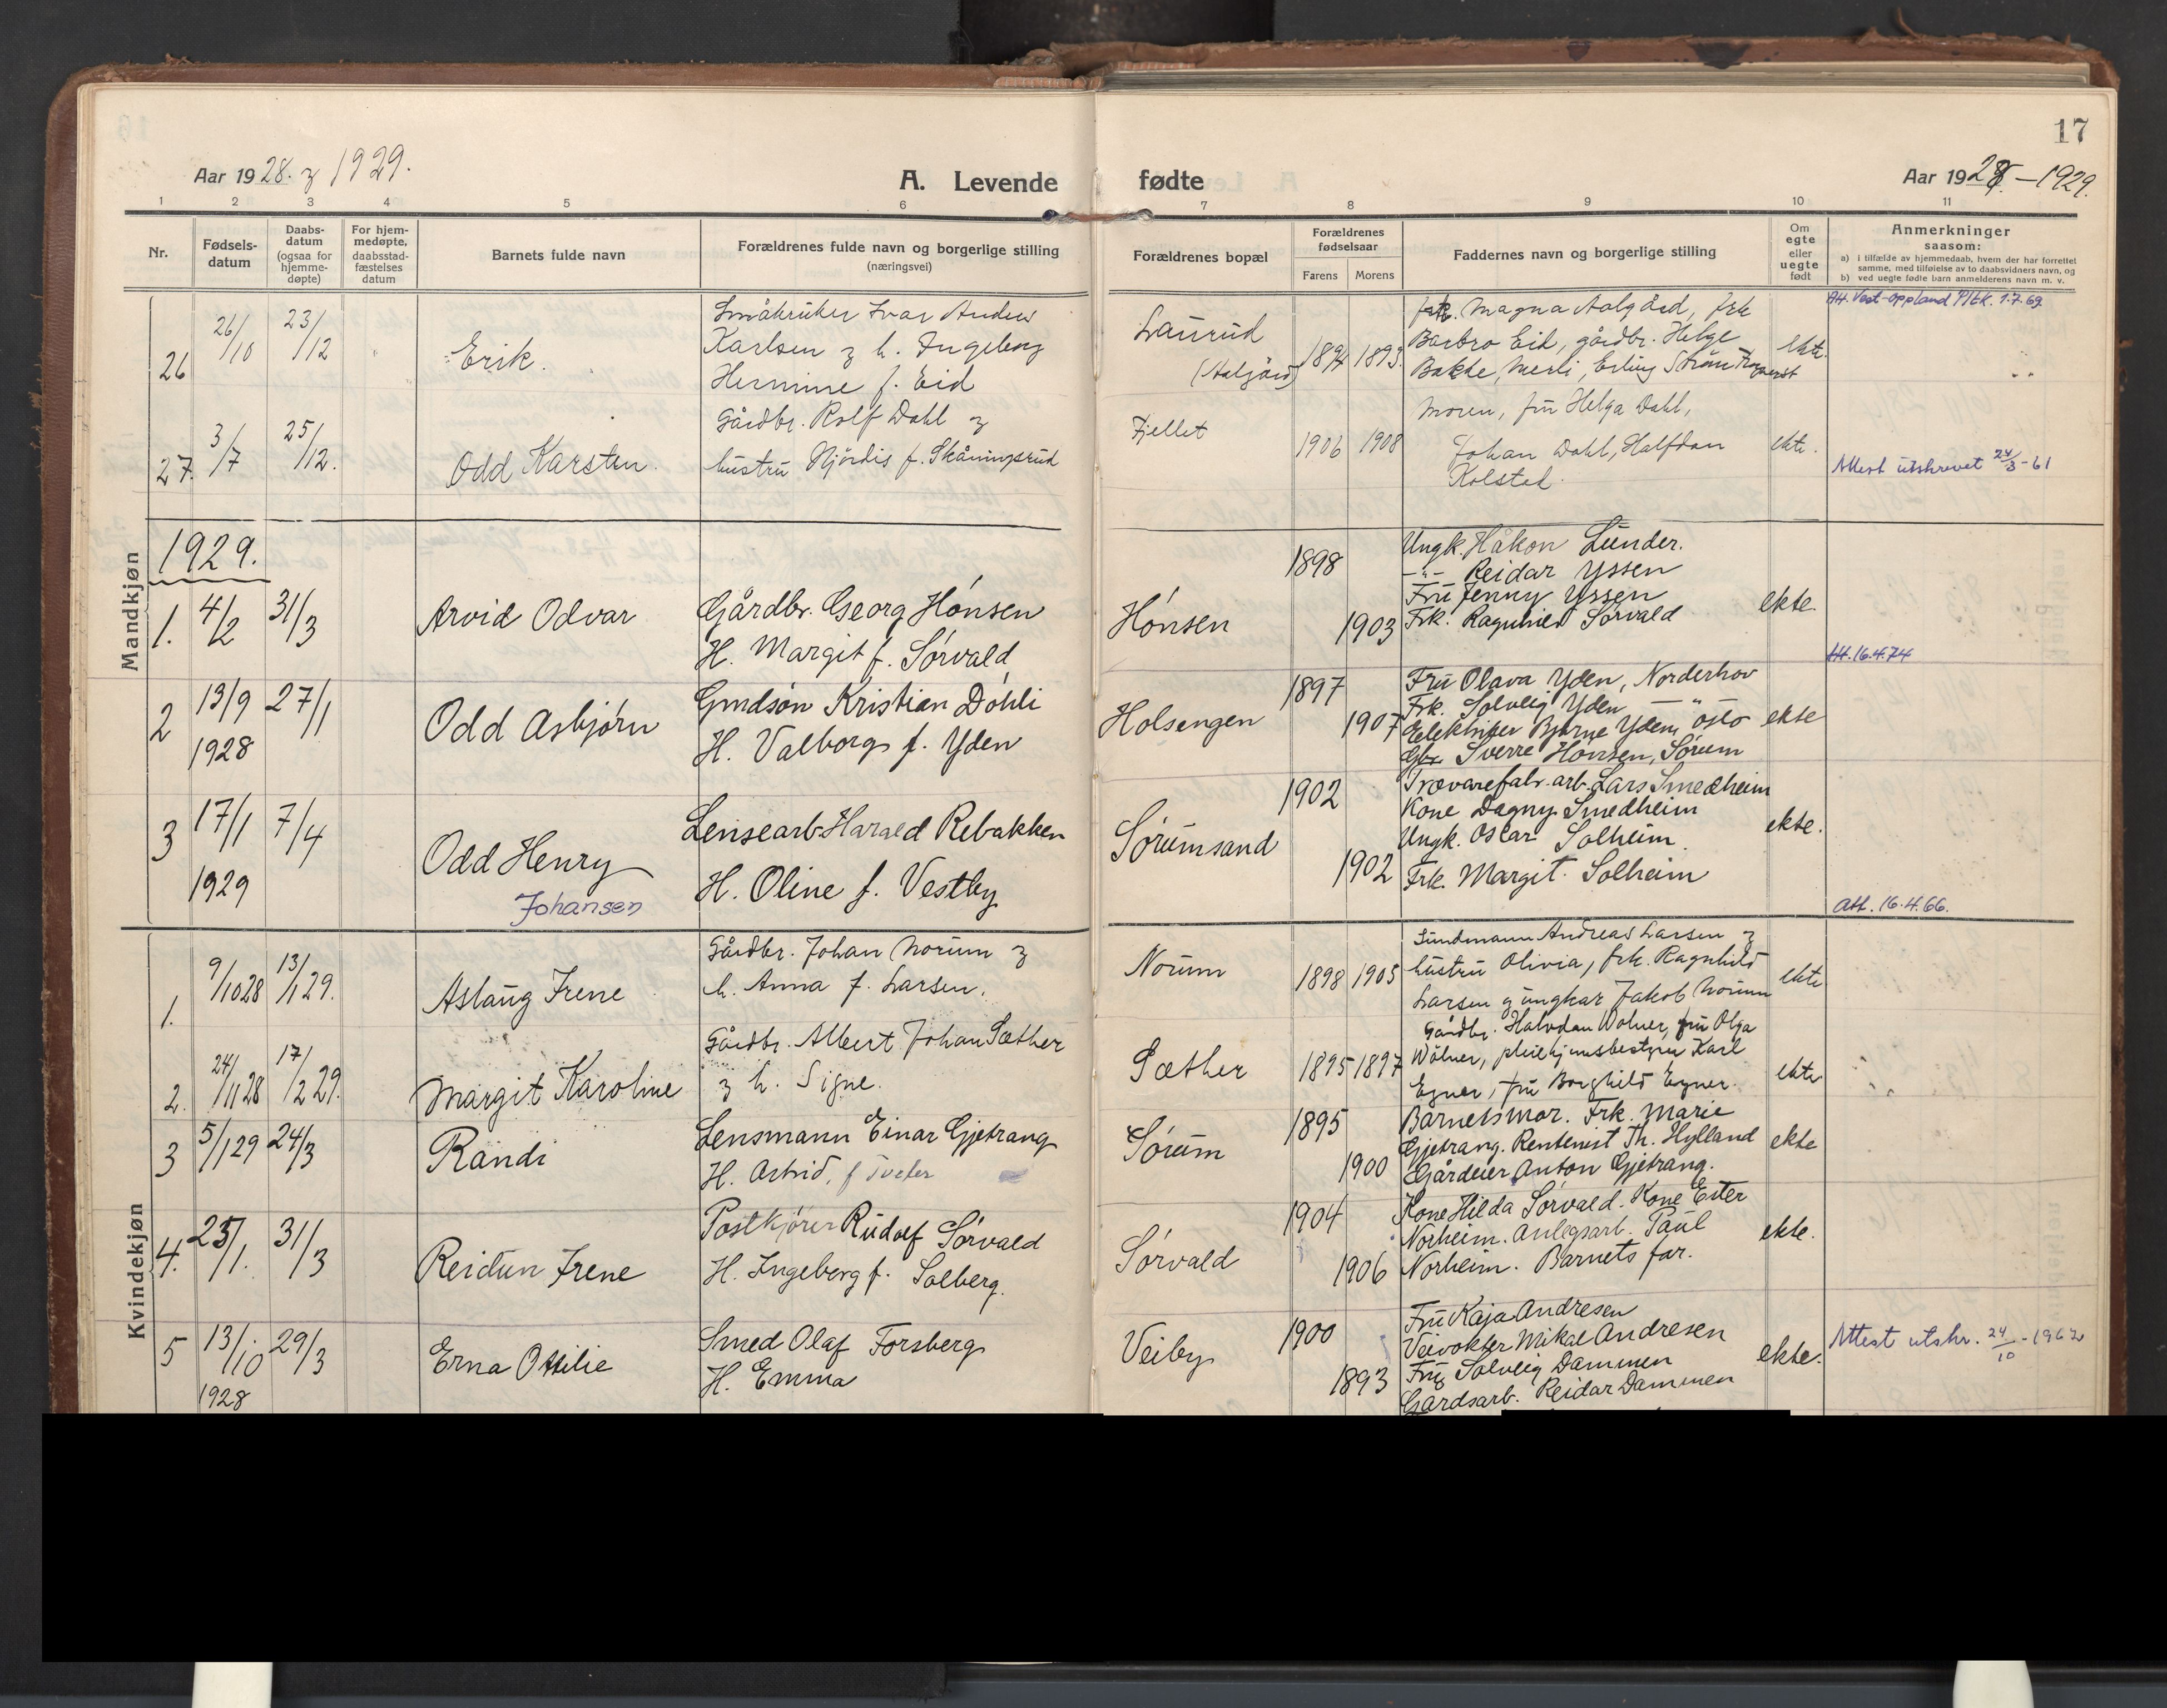 17
Aar 1928. og 1929.
A. Levende
fødte
Aar 1928 – 1929.
1 2 3 4 5 6 7 8 9 10 11
Nr.
Fødsels-
datum
Daabs-
datum
(ogsaa for
hjemme-
døpte)
For hjem-
medøpte,
daabsstad-
fæstelses
datum
Barnets fulde navn
Forældrenes fulde navn og borgerlige stilling
(næringsvei)
Forældrenes bopæl
Forældrenes
fødselsaar
Farens Morens
Faddernes navn og borgerlige stilling
Om
egte
eller
uegte
født
Anmerkninger
saasom:
a) i tilfælde av hjemmedaab, hvem der har forrettet
samme, med tilføielse av to daabsvidners navn, og
b) ved uegte fødte barn anmelderens navn m. v.
Mandkjøn
26
26/10
23/12
Erik.
Småbruker Ivar Anders
Karlsen og h. Ingeborg
Hermine f. Eid
Laurud
(Aalgård)
1894 1893.
frk. Magna Aalgård, frk
Barbro Eid, gårdbr. Helge
Bakke, Merli, Erling Strøm
ekte.
Att. Vest-Oppland P/tk. 1.7.69
27.
3/7
25/12.
Odd Karsten.
Gårdbr. Rolf Dahl og
hustru Hjørdis f. Skåningsrud
Fjellet
1906 1908
Moren, fru Helga Dahl,
Johan Dahl, Halfdan
Kolstad.
ekte.
Attest utskrevet 24/3-61
1929.
1.
4/2
31/3
Arvid Odvar
Gårdbr. Georg Hønsen
H. Margit f. Sørvald
Hønsen
1898
1903
Ungk. Håkon Lunder.
–"– Reidar Yssen
Fru Jenny Yssen
Frk. Ragnhild Sørvald
ekte.
Att. 16.4.74
2
13/9
1928
27/1
Odd Asbjørn
Grndsøn Kristian Døhli
H. Valborg f. Yden
Holsengen
1897
1907
Fru Olava Yden, Norderhov
Frk. Solveig Yden —"—
Bjarne Yden, Oslo
Gbr. Sverre Hønsen, Sørum
ekte
3
17/1
1929
7/4
Odd Henry
Johansen
Lensearb. Harald Rebakken
H. Oline f. Vestby
Sørumsand
1902
1902
Trævarefabr. arb. Lars Smedheim
Kone Dagny Smedheim
Ungk. Oscar Solheim.
Frk. Margit Solheim
ekte.
Att. 16.4.66.
Kvindekjøn
1.
9/10 28
13/1 29.
Aslaug Irene
Gårdbr. Johan Norum og
h. Anna f. Larsen.
Norum
1898 1905
Andreas Larsen og
hustru Olivia, frk. Ragnhild
Larsen og ungkar Jakob Norum
ekte
2.
24/11 28
17/2 29.
Margit Karoline
Gårdbr. Albert Johan Sæther
og h. Signe.
Sæther
1895 1897
Gårdbr. Halvdan Wølner, fru Olga
Wølner, pleiehjemsbestyrer Karl
Egner, fru Borghild Egner.
ekte
3
5/1 29
24/3
Randi
Lensmann Einar Gjetrang
H. Astrid, f Tveter
Sørum
1895
1900
Barnets mor. Frk. Marie
Gjetrang. Rentenist Th. Hylland
Gårdeier Anton Gjetrang.
ekte
4.
25/1.
31/3
Reidun Irene
Postkjører Rudolf Sørvald
H. Ingeborg f. Solberg.
Sørvald
1904
1906
Kone Hilda Sørvald. Kone Ester
Norheim. Anlegsarb. Paul
Norheim. Barnets far.
ekte.
5
13/10
1928
29/3
Erna Ottilie
Smed Olaf Forsberg
H. Emma
Veiby
1900
1893
Fru Kaja Andresen
Veivokter Mikal Andresen
Fru Solveig Dammen
Gårdsarb. Reidar Dammen
ekte.
Attest utskr. 24/10-1962